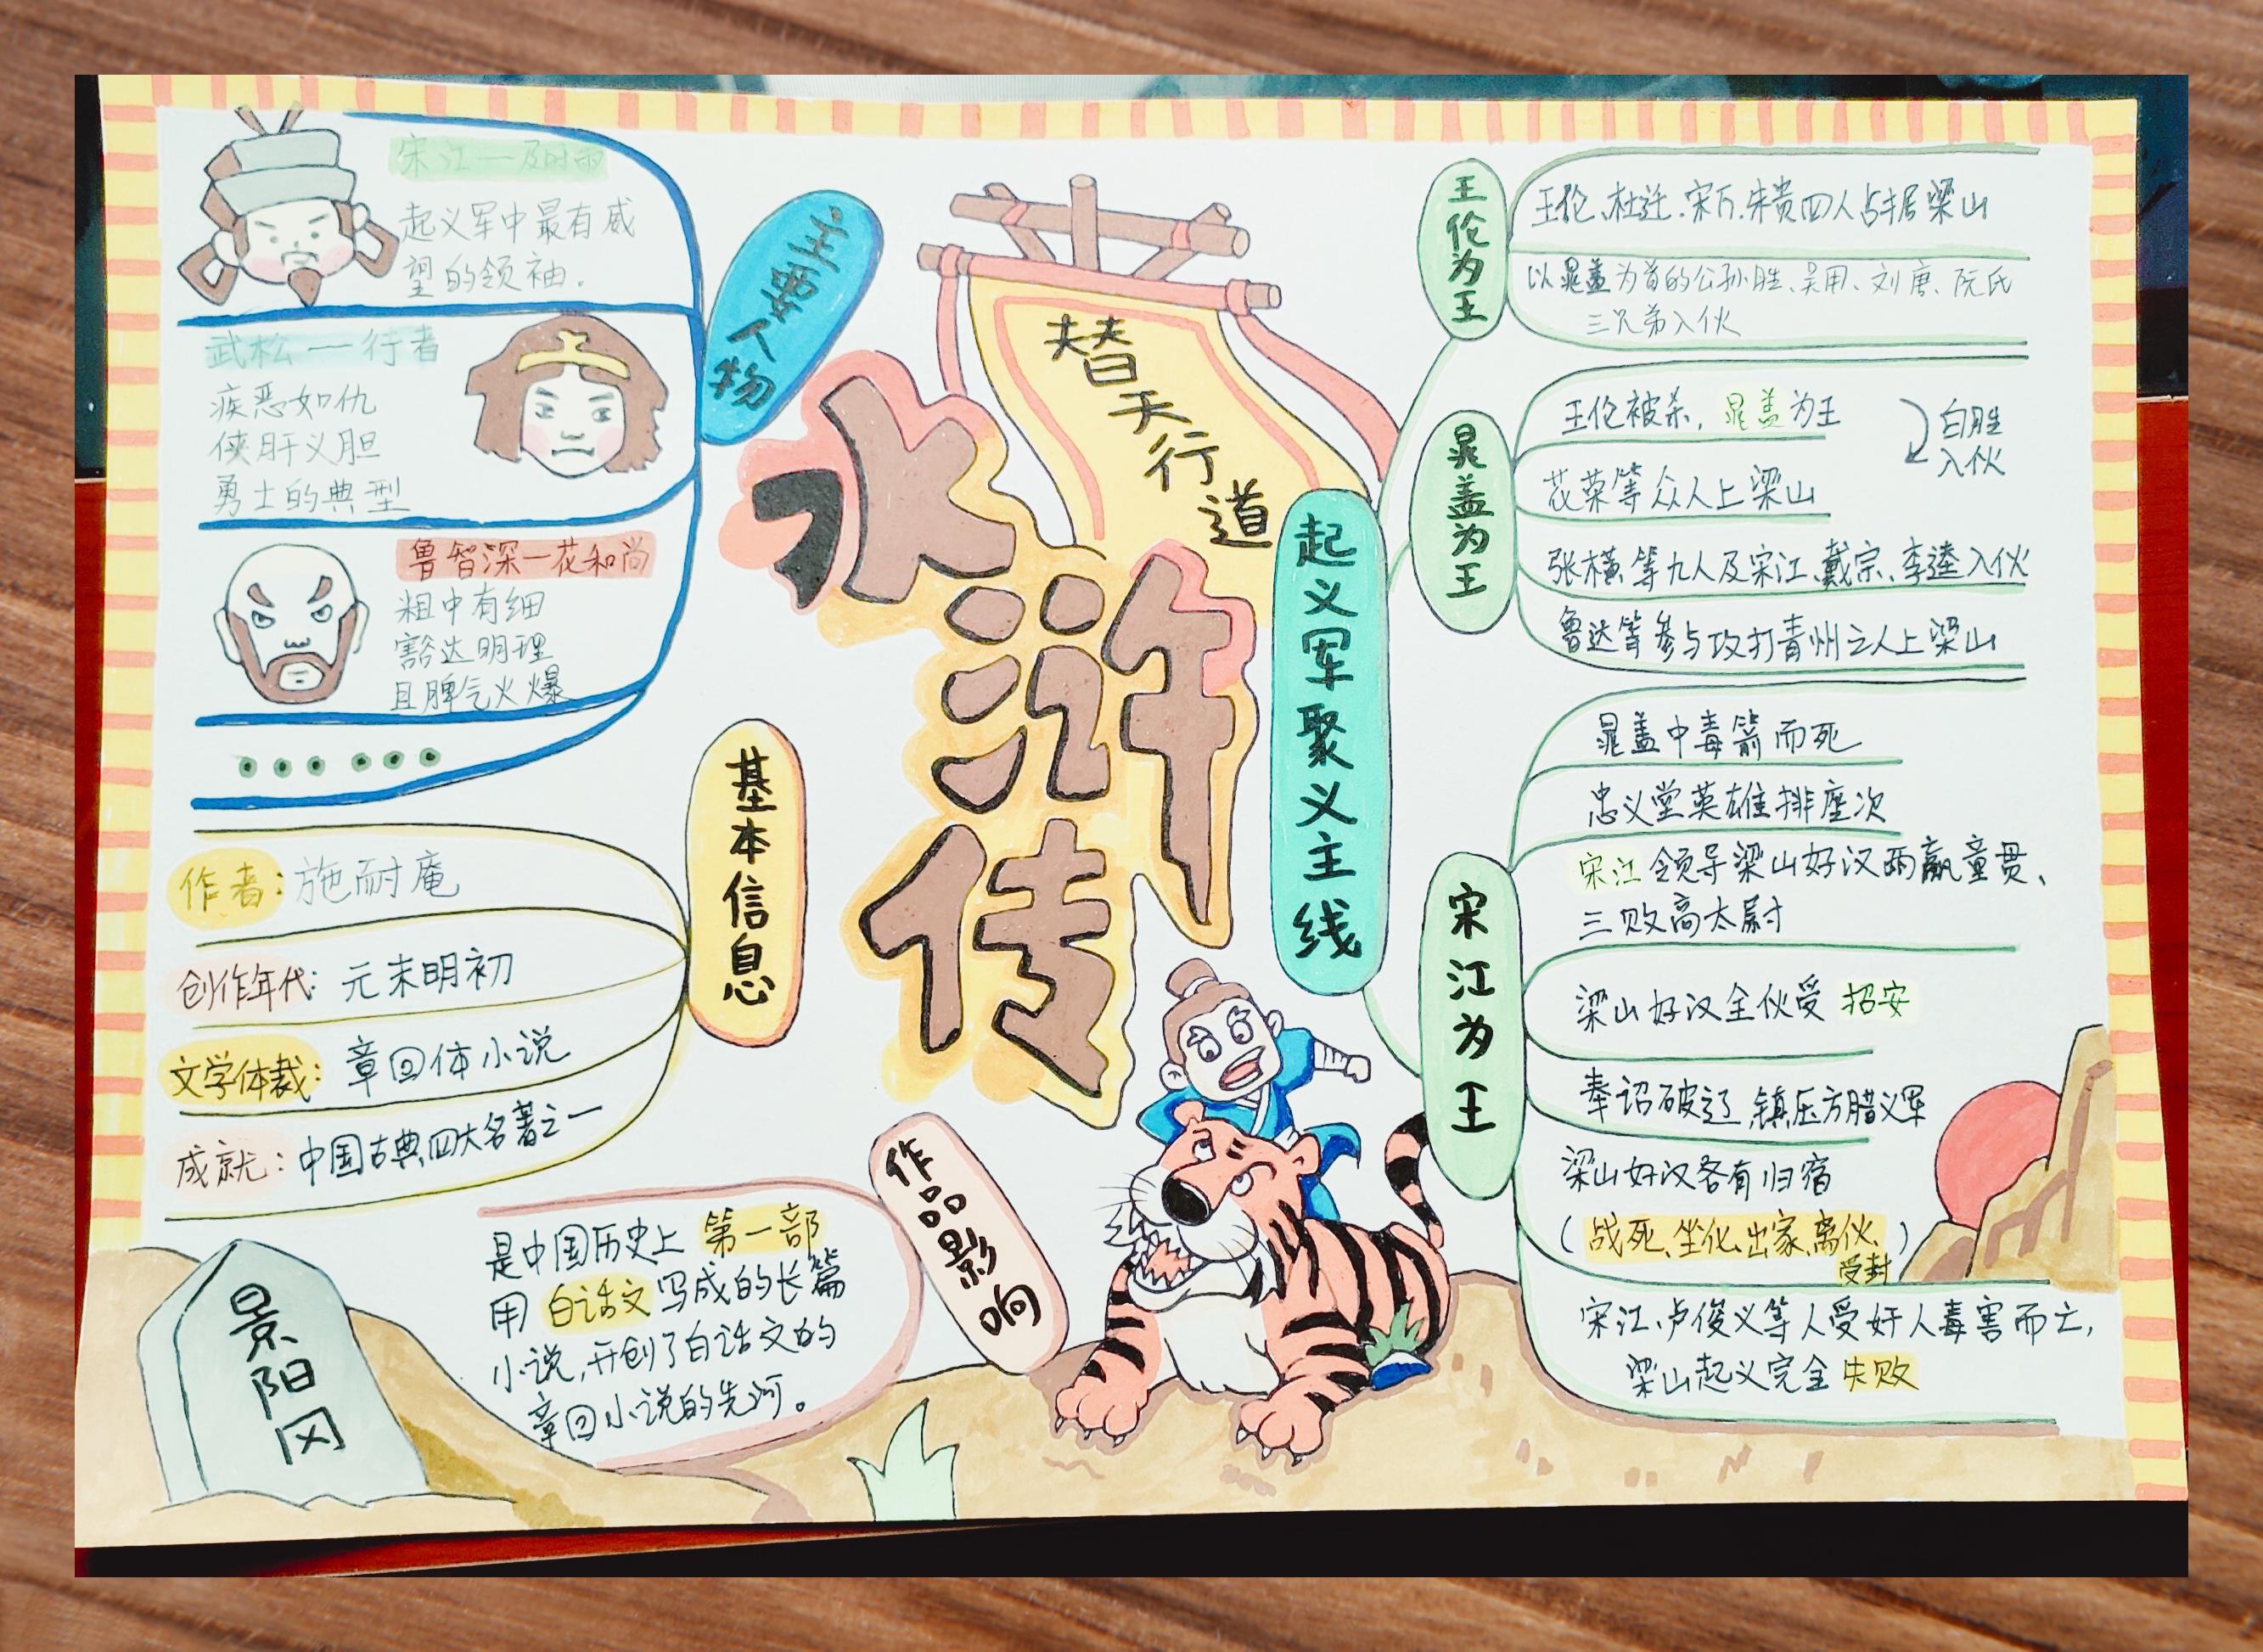 宋江一及时雨
起义军中最有威
望的领袖.
武松一行者
疾恶如仇
侠肝义胆
勇士的典型
鲁智深一花和尚
粗中有细
豁达明理
且脾气火爆
主要人物
替天行道
水浒传
基本信息
作者:施耐庵
创作年代:元末明初
文学体裁:章回体小说
成就:中国古典四大名著之一
作品影响
是中国历史上第一部
用白话文写成的长篇
小说,开创了白话文的
章回小说的先河。
景阳冈
起义军聚义主线
王伦为王
王伦、杜迁.宋万.朱贵四人占据梁山
以晁盖为首的公孙胜、吴用、刘唐、阮氏
三兄弟入伙
晁盖为王
王伦被杀,晁盖为王
白胜
入伙
花荣等众人上梁山
张横等九人及宋江、戴宗、李逵入伙
鲁达等参与攻打青州之人上梁山
宋江为王
晁盖中毒箭而死
忠义堂英雄排座次
宋江领导梁山好汉两赢童贯、
三败高太尉
梁山好汉全伙受招安
奉诏破辽、镇压方腊义军
梁山好汉各有归宿
(战死、坐化、出家、离伙、)
受封
宋江、卢俊义等人受奸人毒害而亡,
梁山起义完全失败